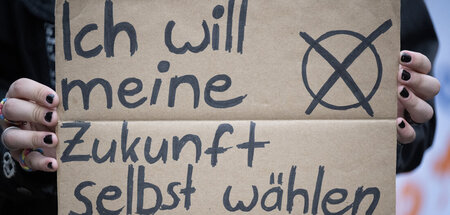 Ich will
meine
Zukunft
selbst wählen